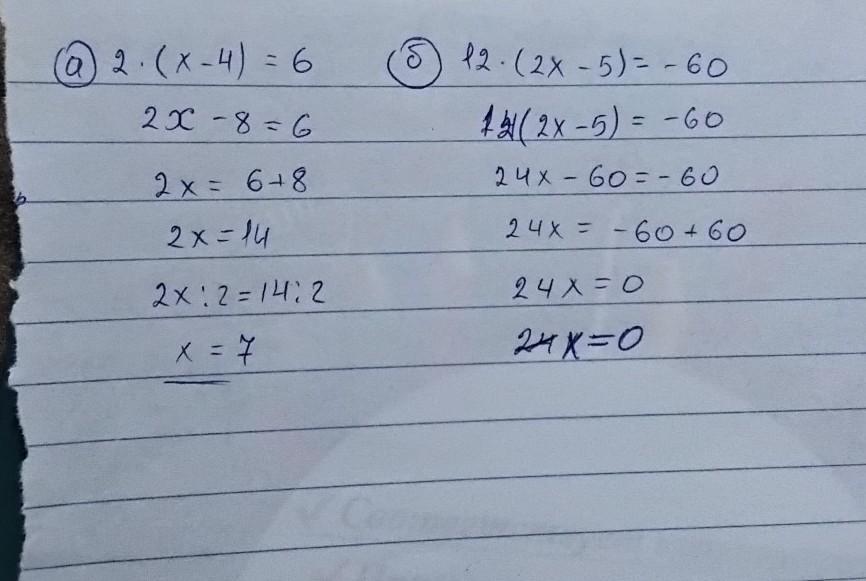 а) 2·(x-4) = 6
2x - 8 = 6
2x = 6+8
2x = 14
2x:2 = 14:2
x = 7
б) 12·(2x-5) = -60
(2x-5) = -60
24x - 60 = -60
24x = -60 + 60
24x = 0
x = 0